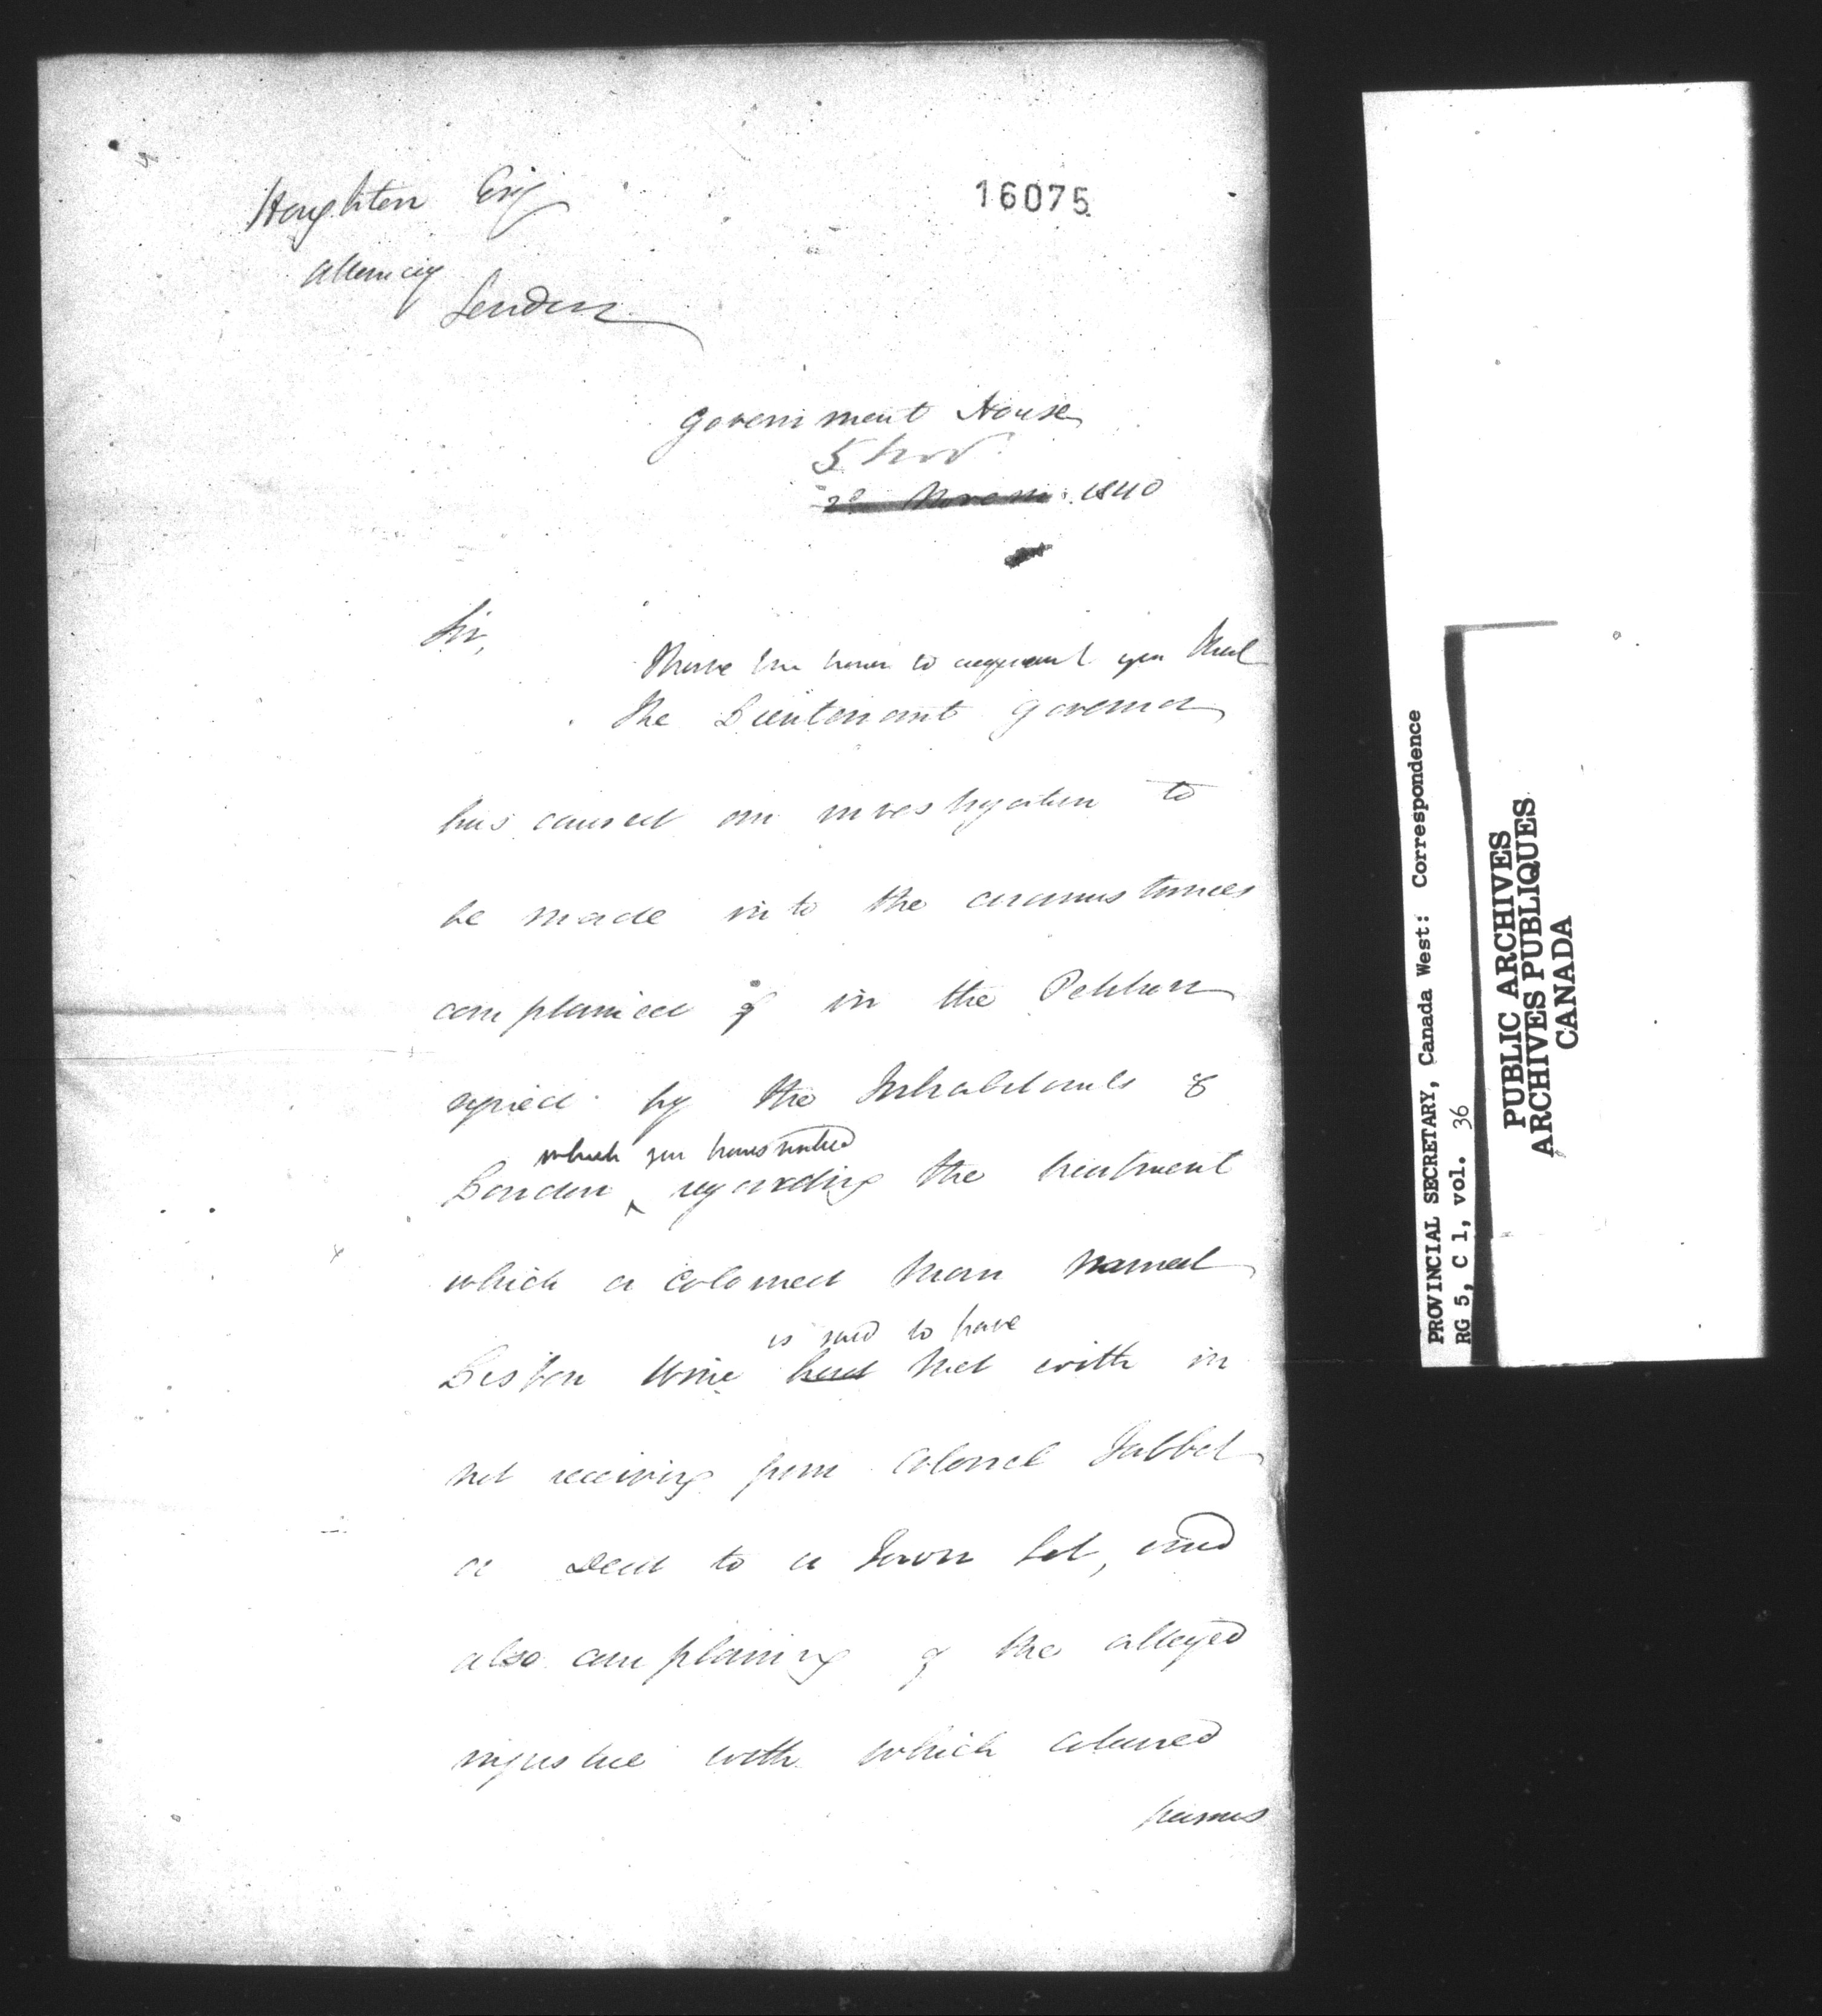 Houghton Esq
16075
Attorney
London
Government House
5 Nov
2d Novem 1840
Sir,
I have the honor to acquaint you that
the Lieutenant Governor
has caused an investigation to
be made into the circumstances
complained of in the Petition
signed by the Inhabitants of
which you transmitted
London regarding the treatment
which a coloured man named
is said to have
had met with in
not receiving from Colonel Talbot
a Deed to a Town Lot, and
also complaining of the alleged
injustice with which coloured
persons
PROVINCIAL SECRETARY, Canada West: Correspondence
RG 5, C 1, vol. 36
PUBLIC ARCHIVES
ARCHIVES PUBLIQUES
CANADA